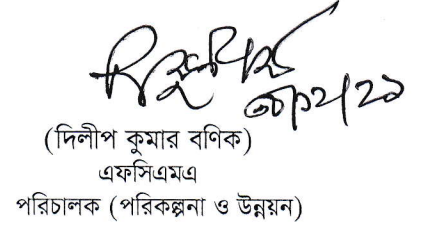 (দিলীপ কুমার বণিক)
এফসিএমএ
পরিচালক (পরিকল্পনা ও উন্নয়ন)